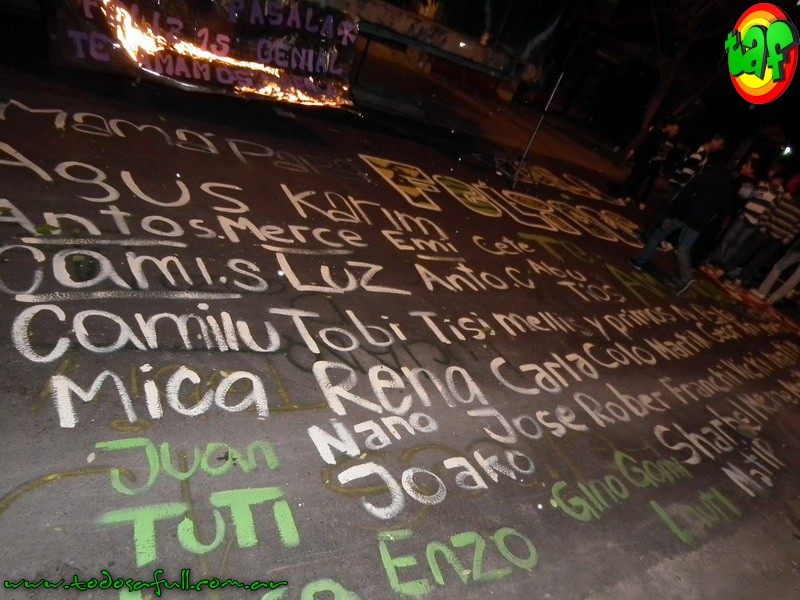 PASALA*
FELIZ 15 GENIAL
TE AMAMOS
taf
mama papa
Agus Karim FELIZ
Antos. Merce Emi Cete Te
Cami.S Luz Anto.C Abu Tios
Camilu Tobi Tisi mellis y primos
Mica Rena Carla Coto Martin
Juan Nano Jose Rober Franchi
TUTI Joako Gino Goni Sharbel
Enzo Lurti Mati P
www.todosafull.com.ar